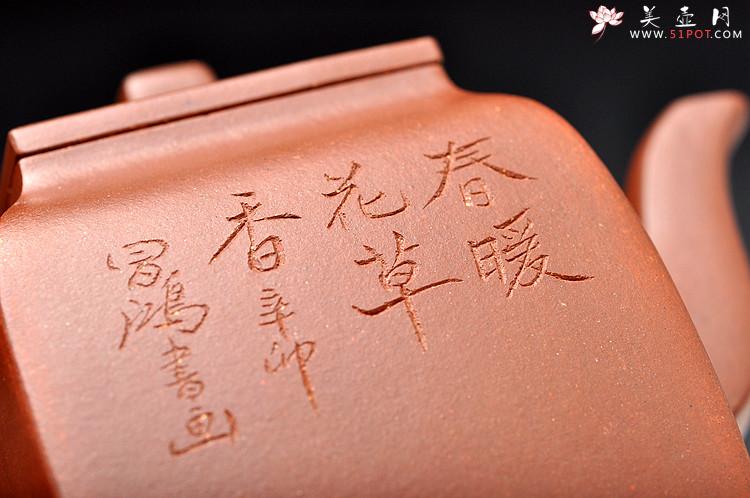 美壶网
WWW.51POT.COM
春暖
花草
香辛卯
冒鸿书画